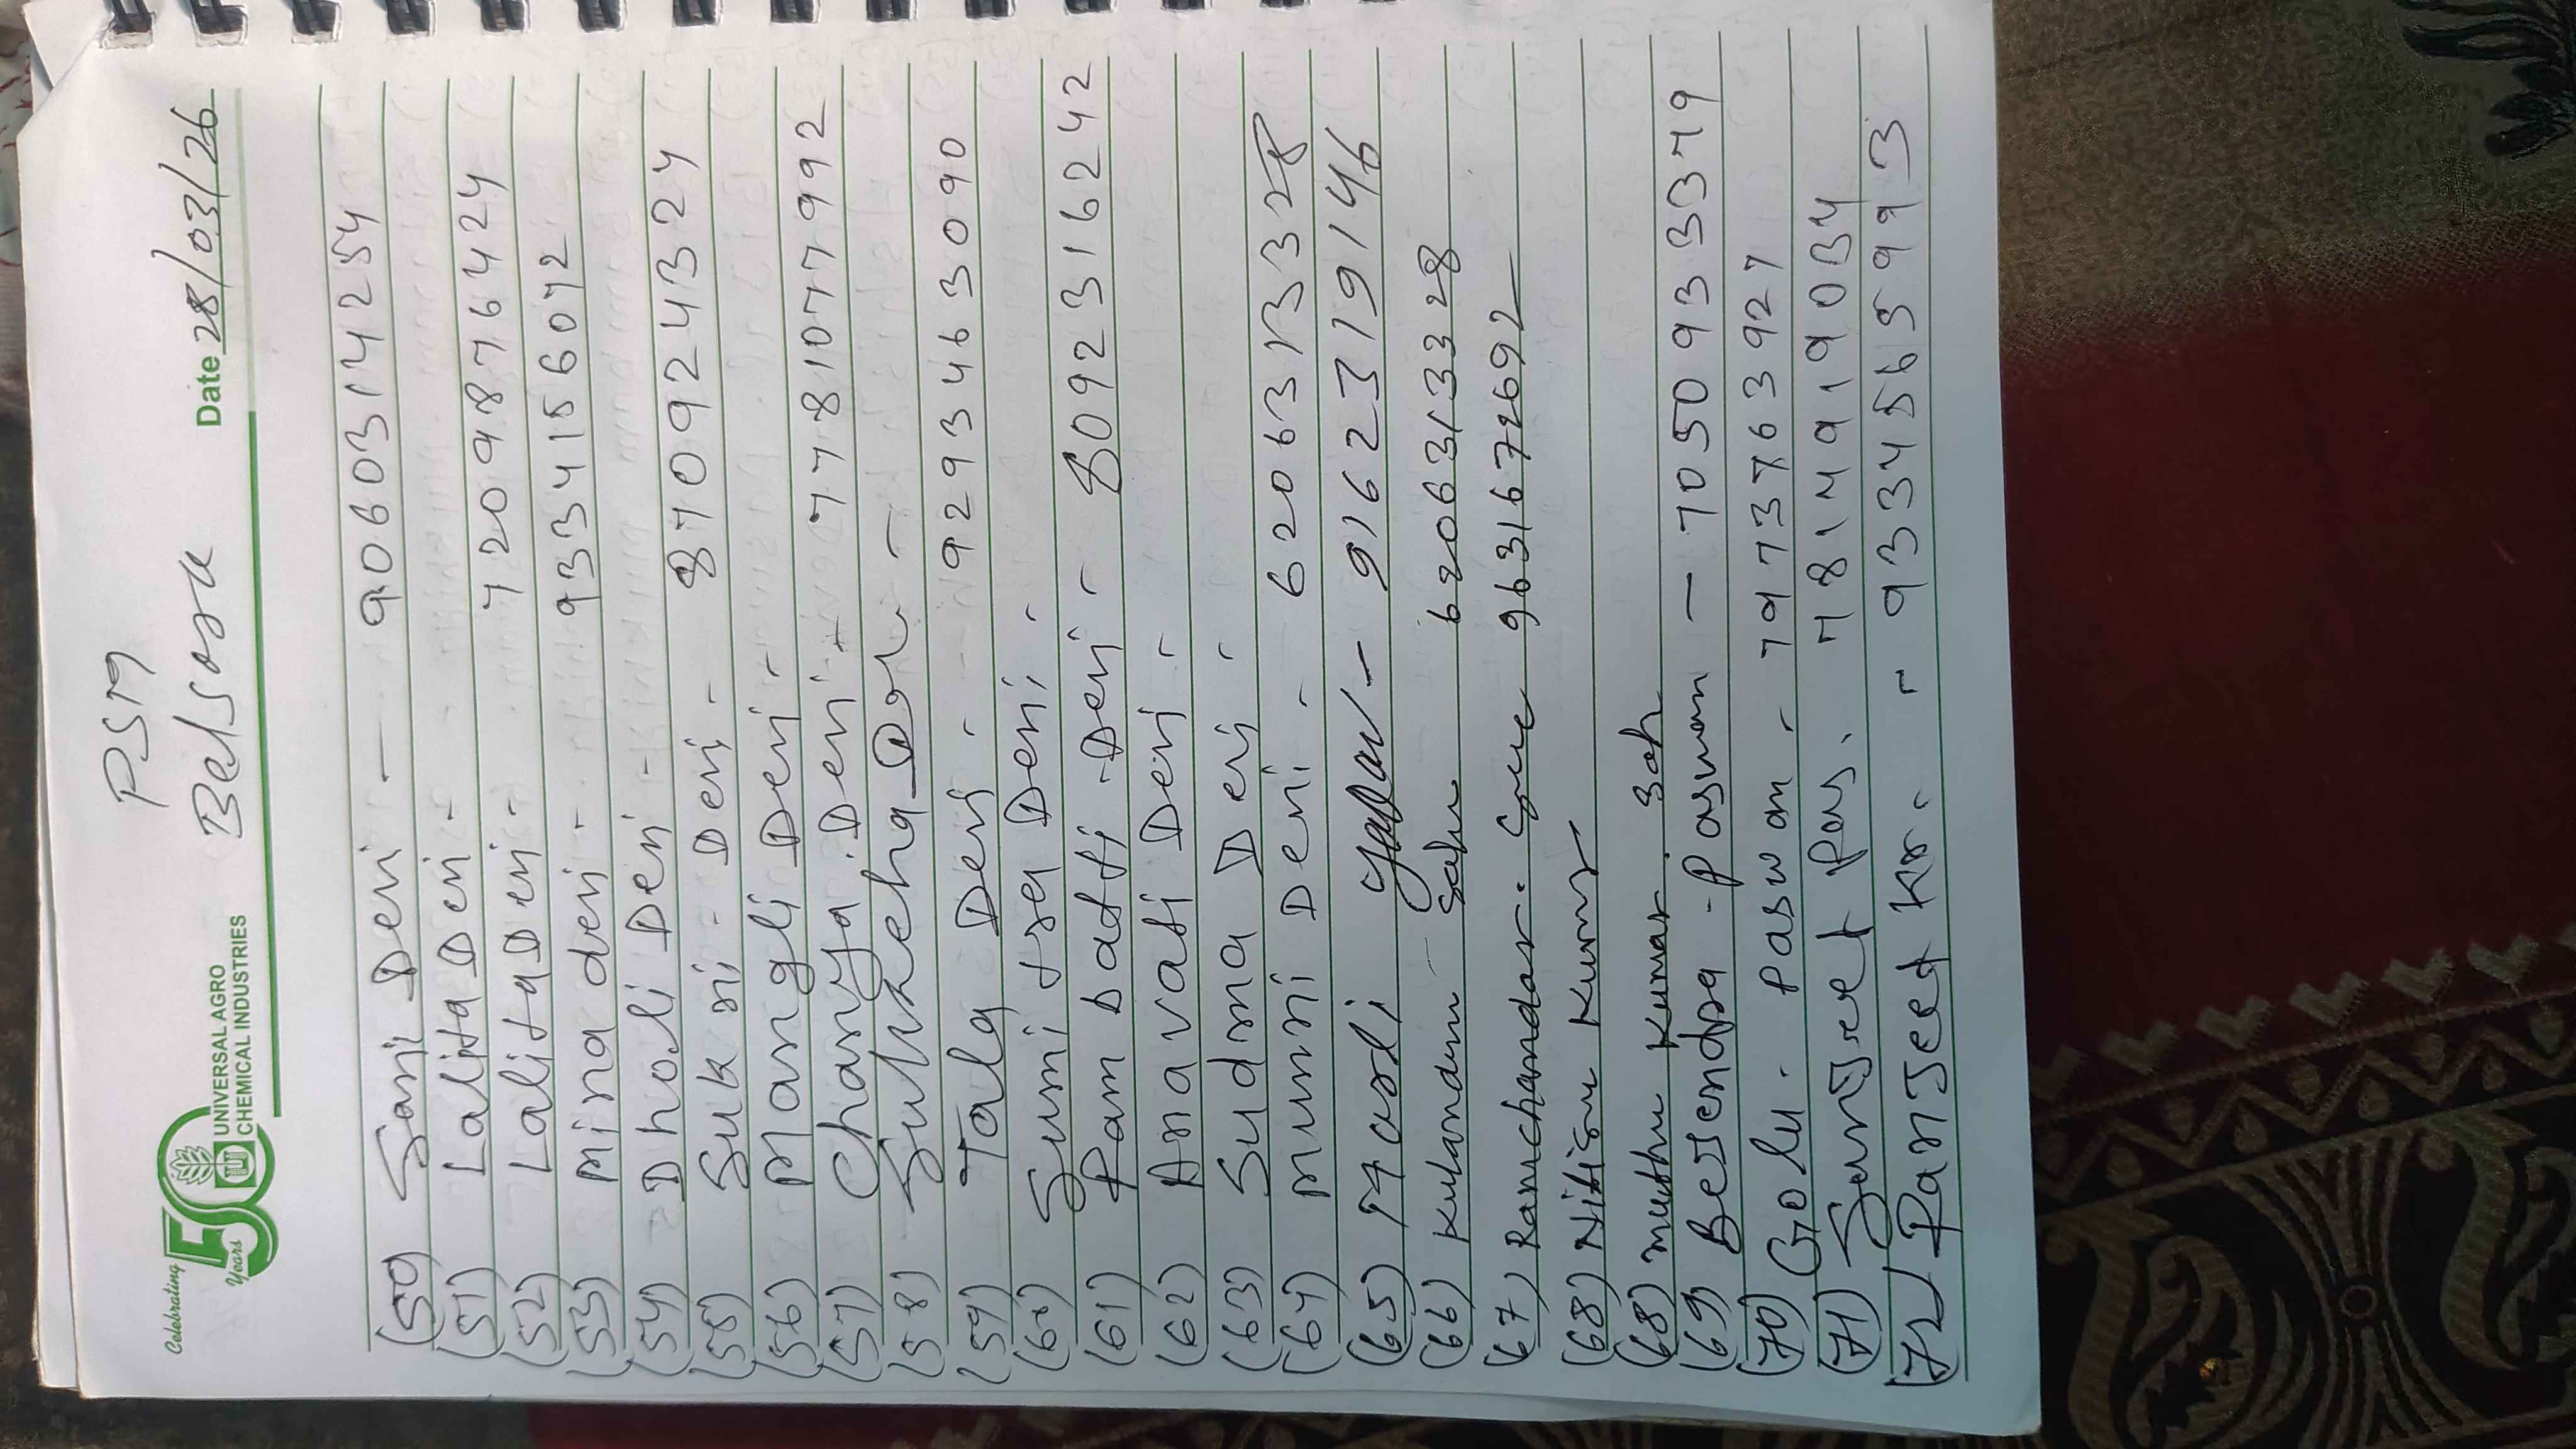 PSM
Belsara
Celebrating
50
Years
UNIVERSAL AGRO
CHEMICAL INDUSTRIES
Date 28/03/26
(50) Sani Devi — 9060314254
(51) Lalita Devi - 7209876424
(52) Lalita Devi - 9334156072
(53) Mina devi -
(54) Dholi Devi - 8709243324
(55) Suk ni - Devi -
(56) Mangli Devi - 7781077992
(57) Chanya. Devi -
(58) Sulekha Devi -
(59) Tala Devi - 9293463090
(60) Sumitra Devi -
(61) Ram Datti - Devi - 8092316242
(62) Anavati Devi -
(63) Sudma Devi -
(64) Munni Devi - 6206313328
(65) yadav - 9162319146
(66) Kulandan - Sahu 6206313328
(67) Ramchandar. 9631672692 —
(68) Nitish Kumar
(68) Muthu Kumar Sah
(69) Bejendra - Paswan — 7050933379
(70) Golu - Paswan - 7973763927
(71) Sanjeet Pas. 7814919034
72 Ranjeet Kr. - 9334565993